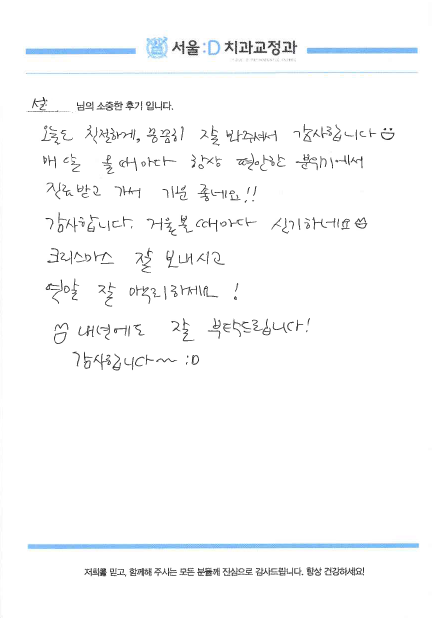 서울:D 치과교정과
님의 소중한 후기 입니다.
오늘도 친절하게, 꼼꼼히 잘 봐주셔서 감사합니다
매 달 올때마다 항상 편안한 분위기에서
진료받고 가서 기분 좋네요!!
감사합니다. 거울볼때마다 신기하네요
크리스마스 잘 보내시고
연말 잘 마무리하세요!
내년에도 잘 부탁드립니다!
감사합니다~ :D
저희를 믿고, 함께해 주시는 모든 분들께 진심으로 감사드립니다. 항상 건강하세요!